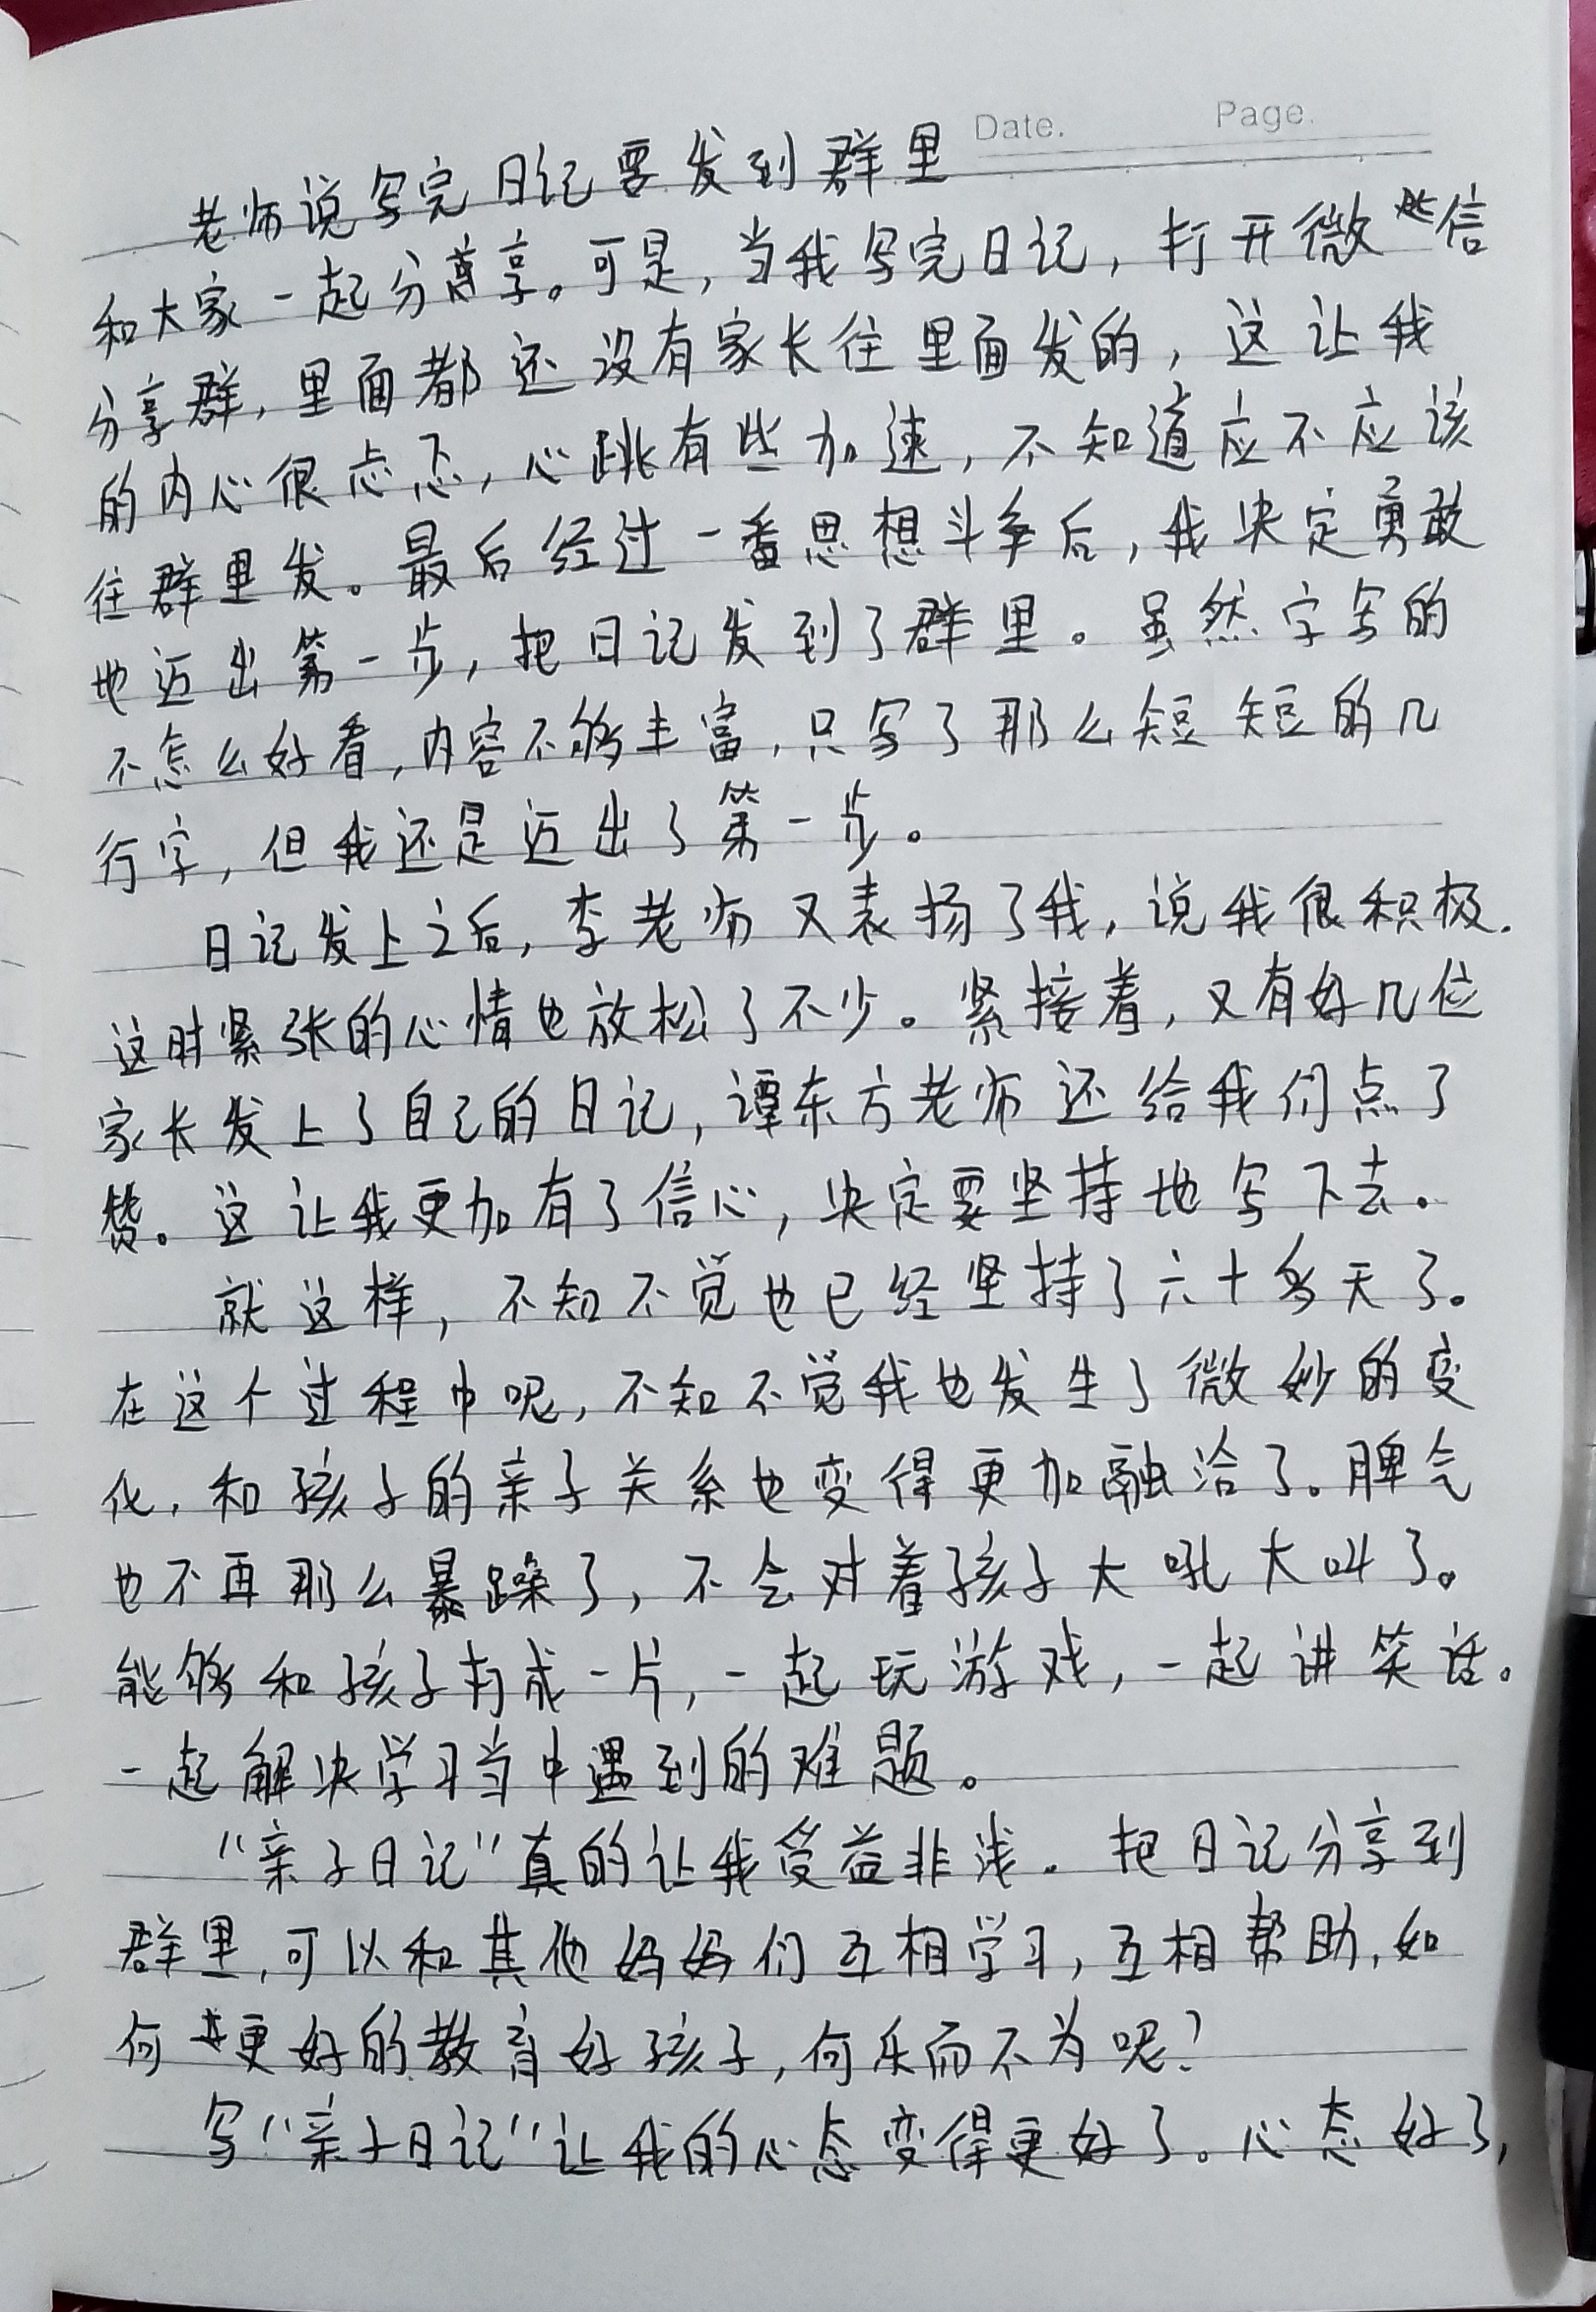 Date. Page.
老师说写完日记要发到群里
和大家一起分享。可是,当我写完日记,打开微信
分享群,里面都还没有家长往里面发的,这让我
的内心很忐忑,心跳有些加速,不知道应不应该
往群里发。最后经过一番思想斗争后,我决定勇敢
地迈出第一步,把日记发到了群里。虽然字写的
不怎么好看,内容不够丰富,只写了那么短短的几
行字,但我还是迈出了第一步。
日记发上之后,李老师又表扬了我,说我很积极.
这时紧张的心情也放松了不少。紧接着,又有好几位
家长发上了自己的日记,谭东方老师还给我们点了
赞。这让我更加有了信心,决定要坚持地写下去。
就这样,不知不觉也已经坚持了六十多天了。
在这个过程中呢,不知不觉我也发生了微妙的变
化,和孩子的亲子关系也变得更加融洽了。脾气
也不再那么暴躁了,不会对着孩子大吼大叫了。
能够和孩子打成一片,一起玩游戏,一起讲笑话。
一起解决学习当中遇到的难题。
“亲子日记”真的让我受益非浅。把日记分享到
群里,可以和其他妈妈们互相学习,互相帮助,如
何更好的教育好孩子,何乐而不为呢?
写“亲子日记”让我的心态变得更好了。心态好了,